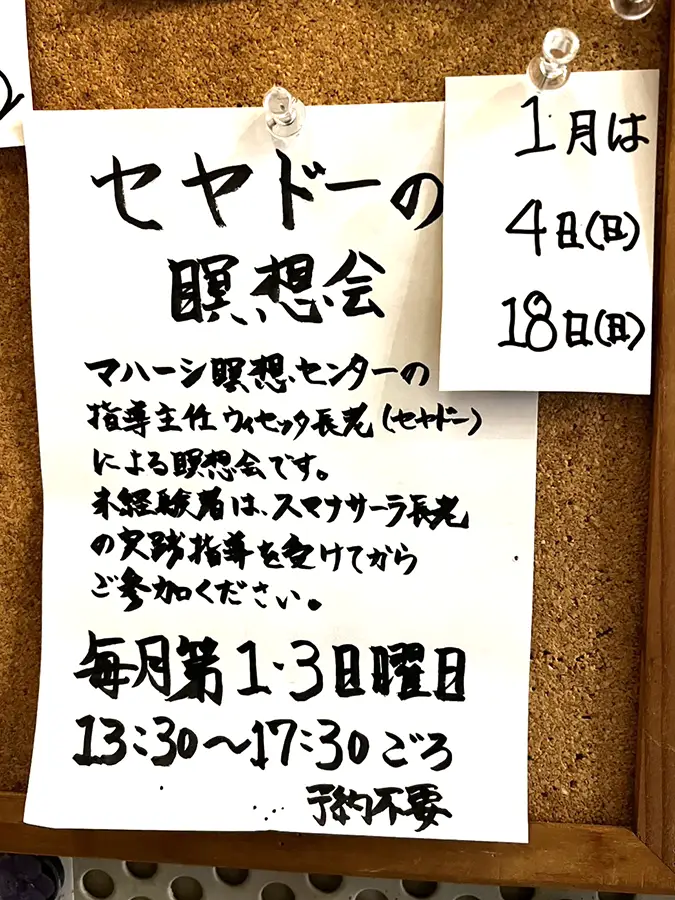 セヤドーの
瞑想会
マハーシ瞑想センターの
指導主任ウィセッタ長老(セヤドー)
による瞑想会です。
未経験者は、スマナサーラ長老
の実践指導を受けてから
ご参加ください。
毎月第1・3日曜日
13:30〜17:30ごろ
予約不要
1月は
4日(日)
18日(日)